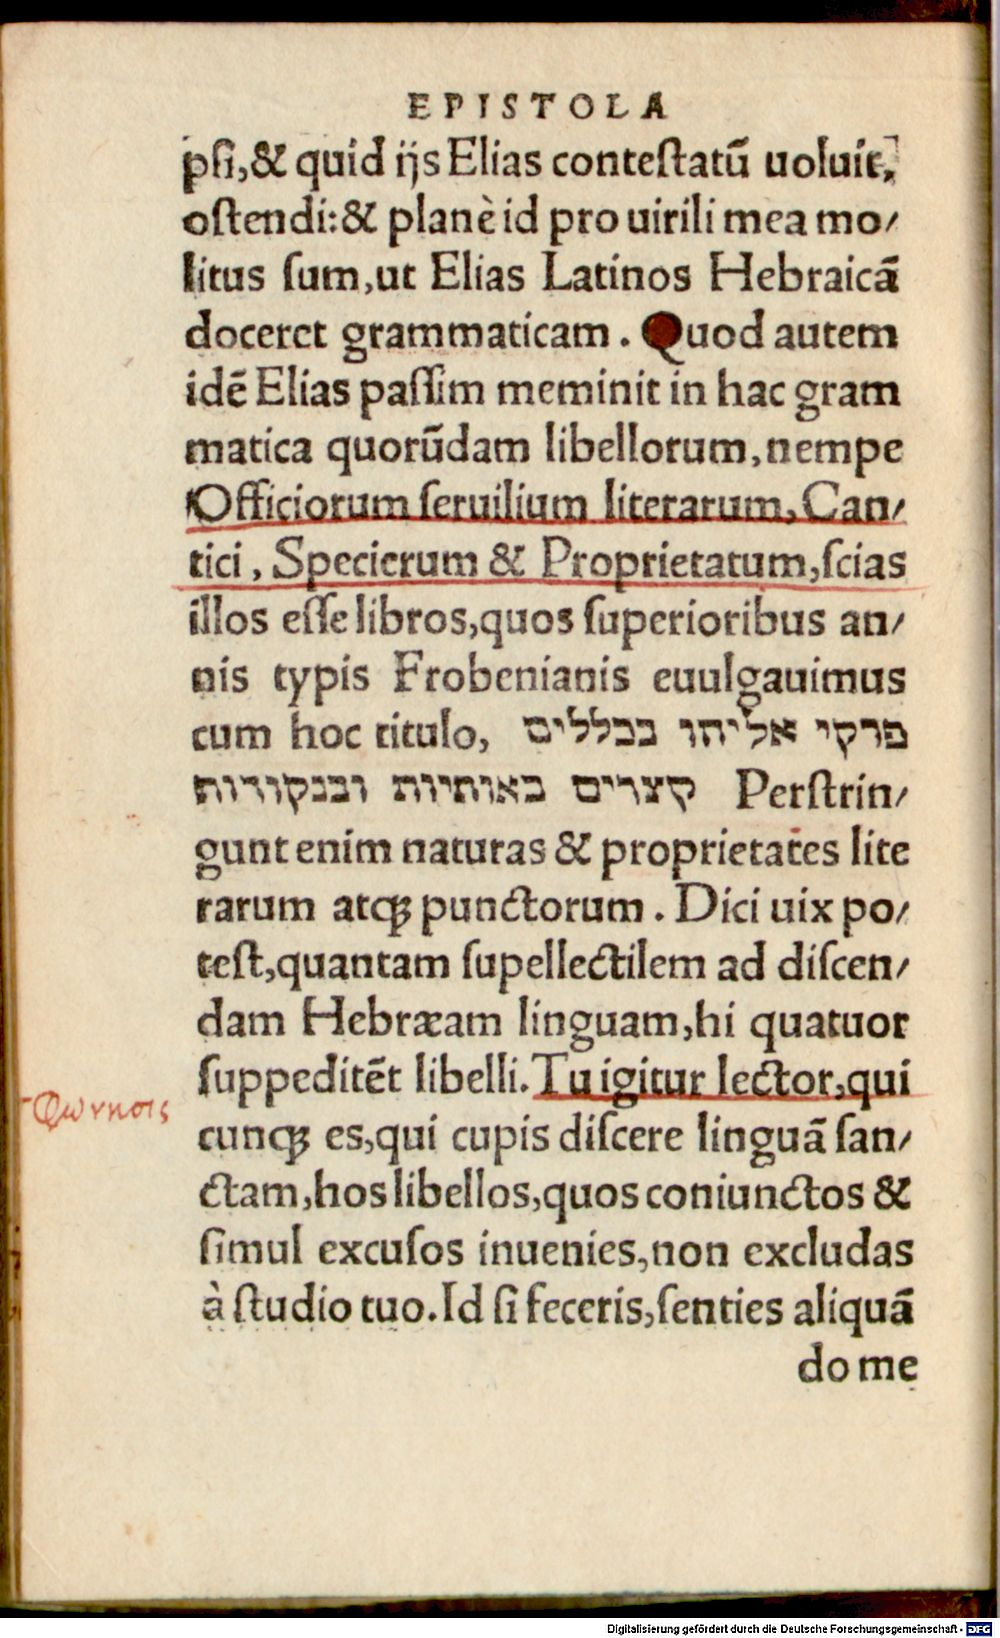 EPISTOLA
psi, & quid ijs Elias contestatũ uoluit,
ostendi: & planè id pro uirili mea mo/
litus sum, ut Elias Latinos Hebraicã
doceret grammaticam. Quod autem
idẽ Elias passim meminit in hac gram
matica quorũdam libellorum, nempe
Officiorum seruilium literarum, Can/
tici, Specierum & Proprietatum, scias
illos esse libros, quos superioribus an/
nis typis Frobenianis euulgauimus
cum hoc titulo, פרקי אליהו בכללים
קצרים באותיות ובנקודות Perstrin/
gunt enim naturas & proprietates lite
rarum atqꝫ punctorum. Dici uix po/
test, quantam supellectilem ad discen/
dam Hebræam linguam, hi quatuor
suppeditẽt libelli. Tu igitur lector, qui
Φώνησις
cunqꝫ es, qui cupis discere linguã san/
ctam, hos libellos, quos coniunctos &
simul excusos inuenies, non excludas
à studio tuo. Id si feceris, senties aliquã
do me
Digitalisierung gefördert durch die Deutsche Forschungsgemeinschaft - DFG